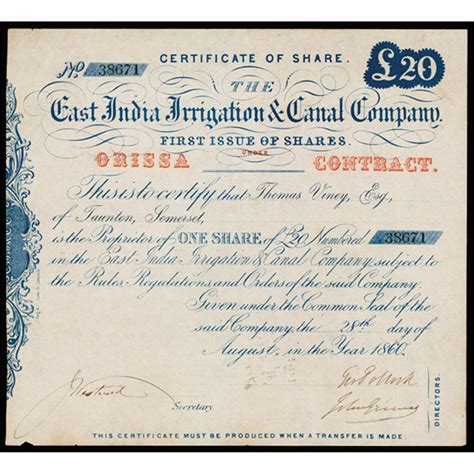 CERTIFICATE OF SHARE.
No. 38671
£20
THE
East India Irrigation & Canal Company.
FIRST ISSUE OF SHARES.
ORISSA UNDER CONTRACT.
This is to certify that Thomas Viney, Esq,
of Taunton, Somerset,
is the Proprietor of ONE SHARE of £20 Numbered 38671
in the East India Irrigation & Canal Company subject to
the Rules Regulations and Orders of the said Company.
Given under the Common Seal of the
said Company, the 28th day of
August, in the Year 1860.
Secretary.
DIRECTORS.
THIS CERTIFICATE MUST BE PRODUCED WHEN A TRANSFER IS MADE.